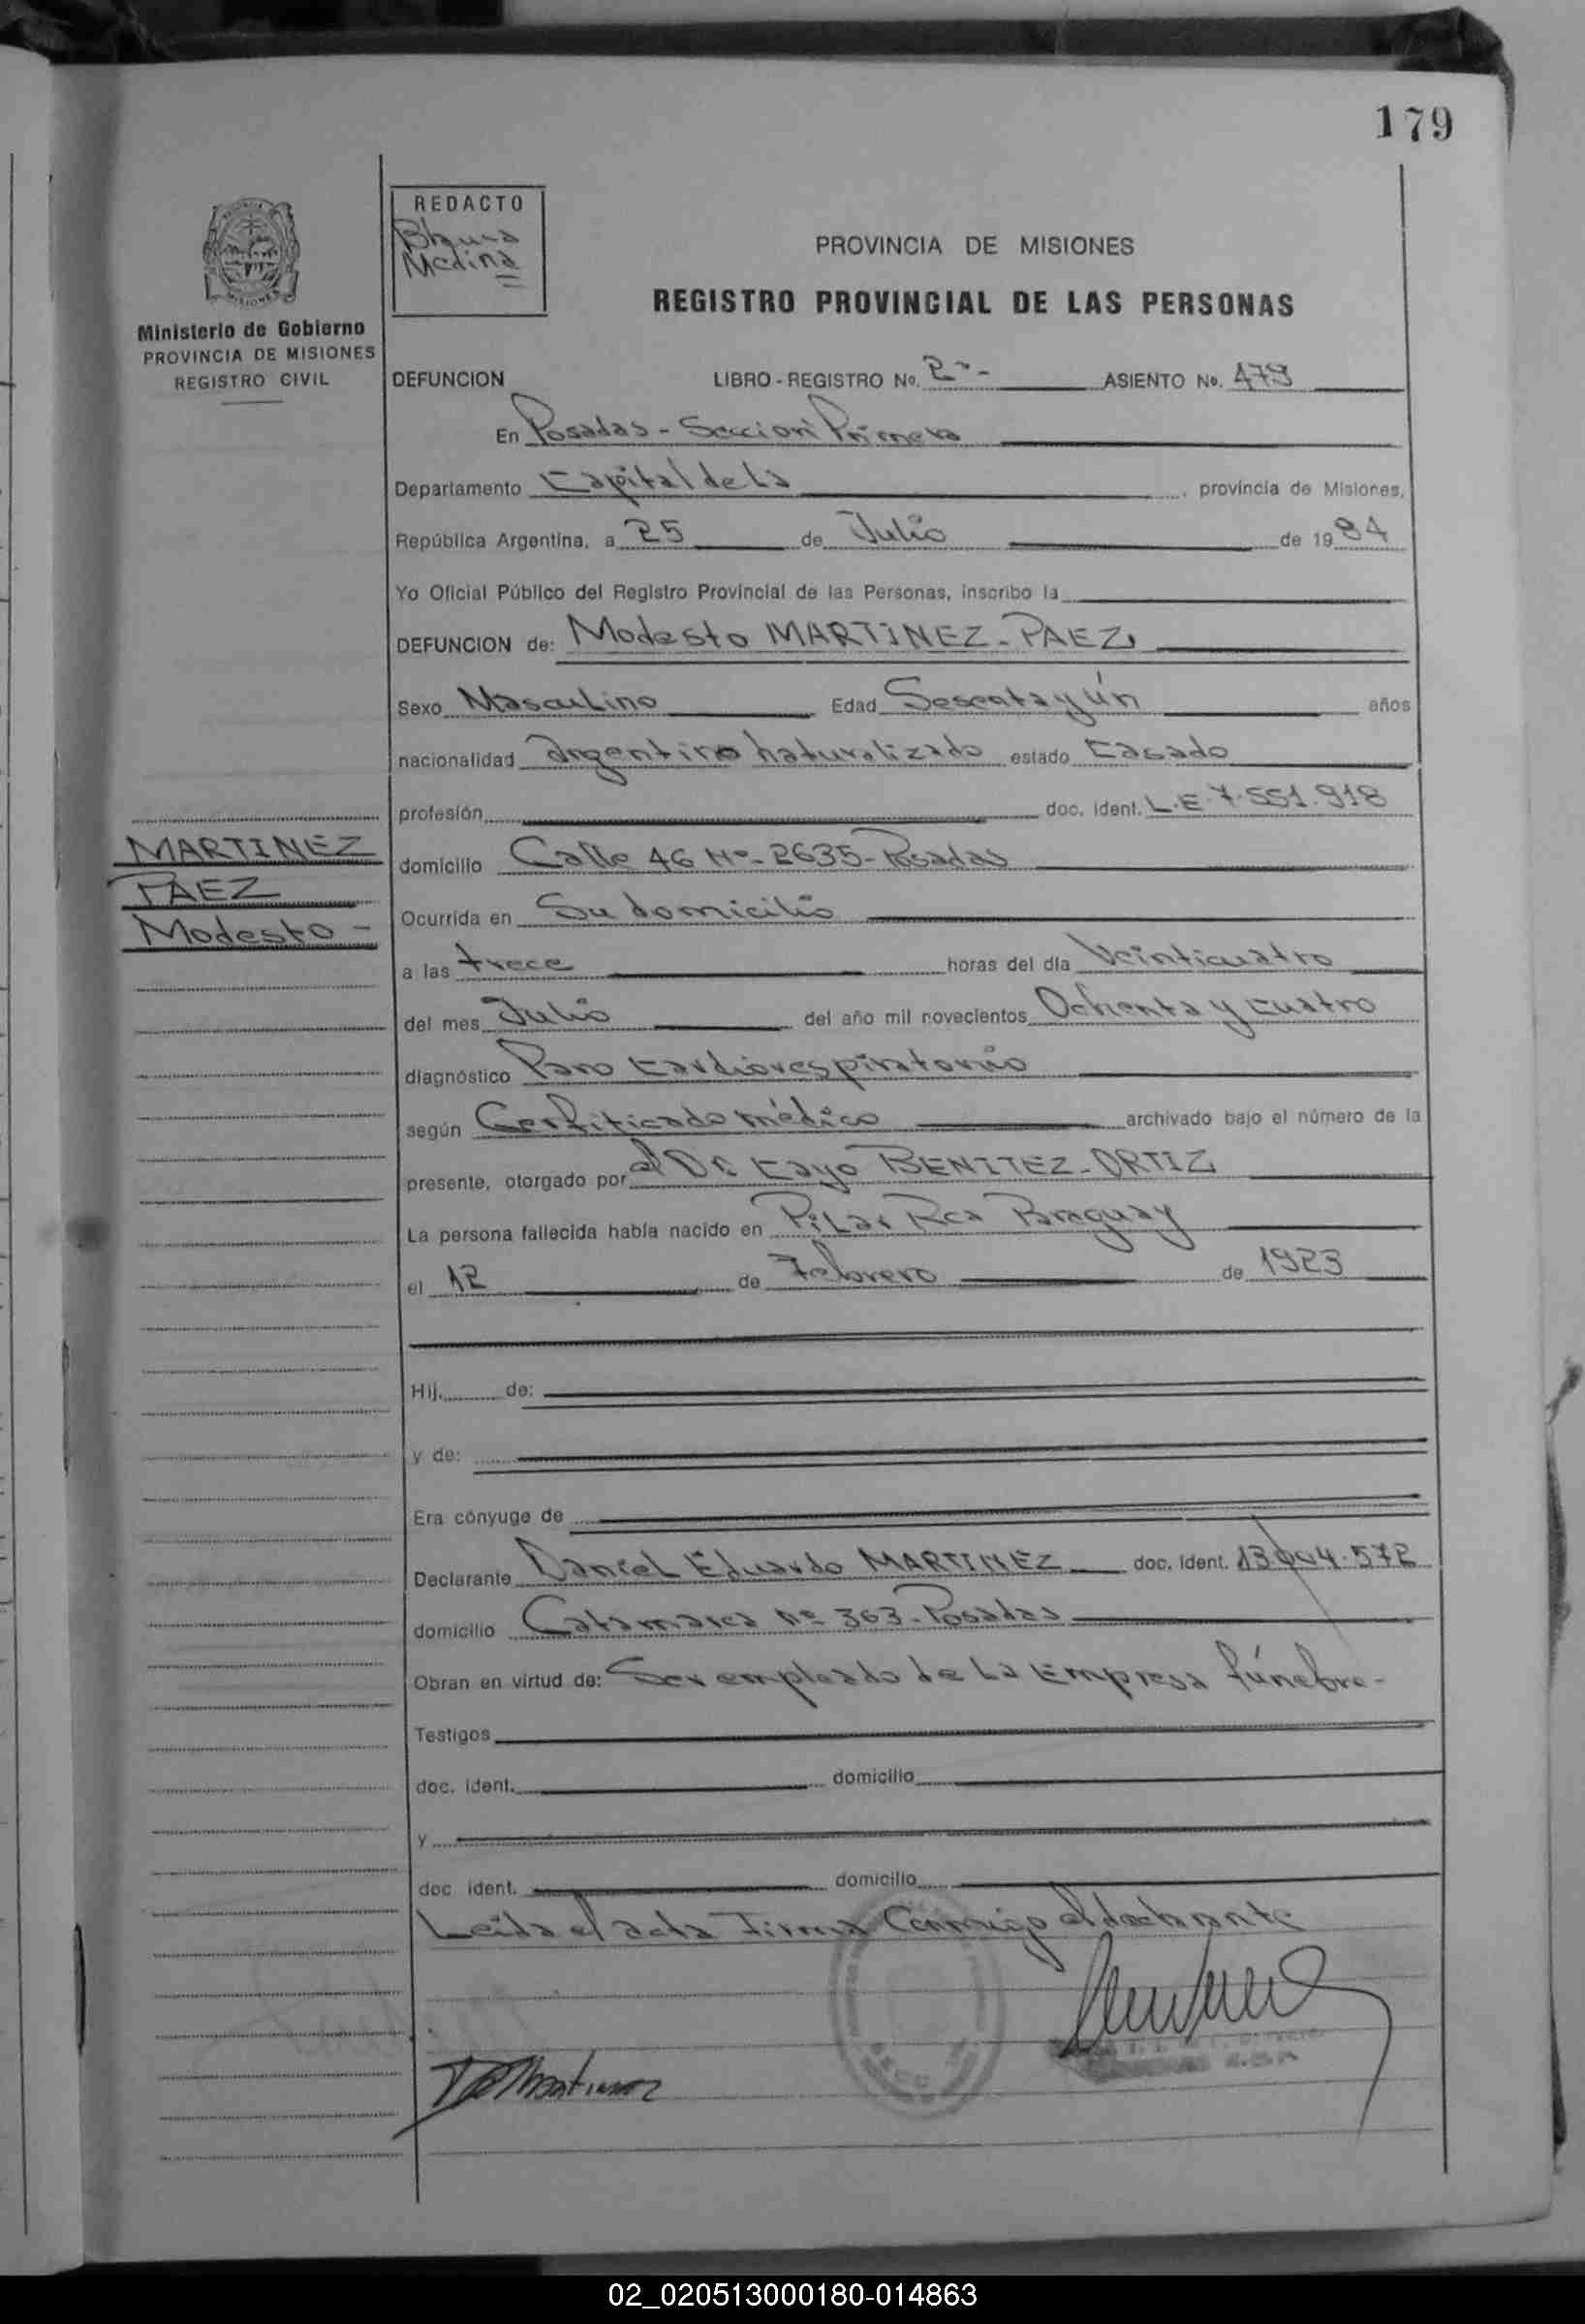 179
REDACTO
Blanca
Medina
PROVINCIA DE MISIONES
REGISTRO PROVINCIAL DE LAS PERSONAS
Ministerio de Gobierno
PROVINCIA DE MISIONES
REGISTRO CIVIL
DEFUNCION LIBRO - REGISTRO No. 2º- ASIENTO No. 479
En Posadas - Sección Primera
Departamento Capital de La , provincia de Misiones,
República Argentina, a 25 de Julio de 1984
Yo Oficial Público del Registro Provincial de las Personas, inscribo la
DEFUNCION de: Modesto MARTINEZ-PAEZ
Sexo Masculino Edad Sesentayún años
nacionalidad Argentino naturalizado estado Casado
profesión doc. ident. L.E.7.551.918
domicilio Calle 46 Nº-2635-Posadas
Ocurrida en Su domicilio
a las trece horas del día Veinticuatro
del mes Julio del año mil novecientos Ochenta y cuatro
diagnóstico Paro Cardiorespiratorio
según Certificado médico archivado bajo el número de la
presente, otorgado por el Dr. Cayo BENITEZ-ORTIZ
La persona fallecida había nacido en Pilar Rca Paraguay
el 12 de Febrero de 1923
MARTINEZ
PAEZ
Modesto -
Hij. de:
y de:
Era cónyuge de
Declarante Daniel Eduardo MARTINEZ doc. ident. 13.004.572
domicilio Catamarca Nº 363-Posadas
Obran en virtud de: Ser empleado de La Empresa fúnebre-
Testigos
doc. ident. domicilio
y
doc ident. domicilio
Leida el acta Firma Conmigo el declarante
DEMartinez
02_020513000180-014863